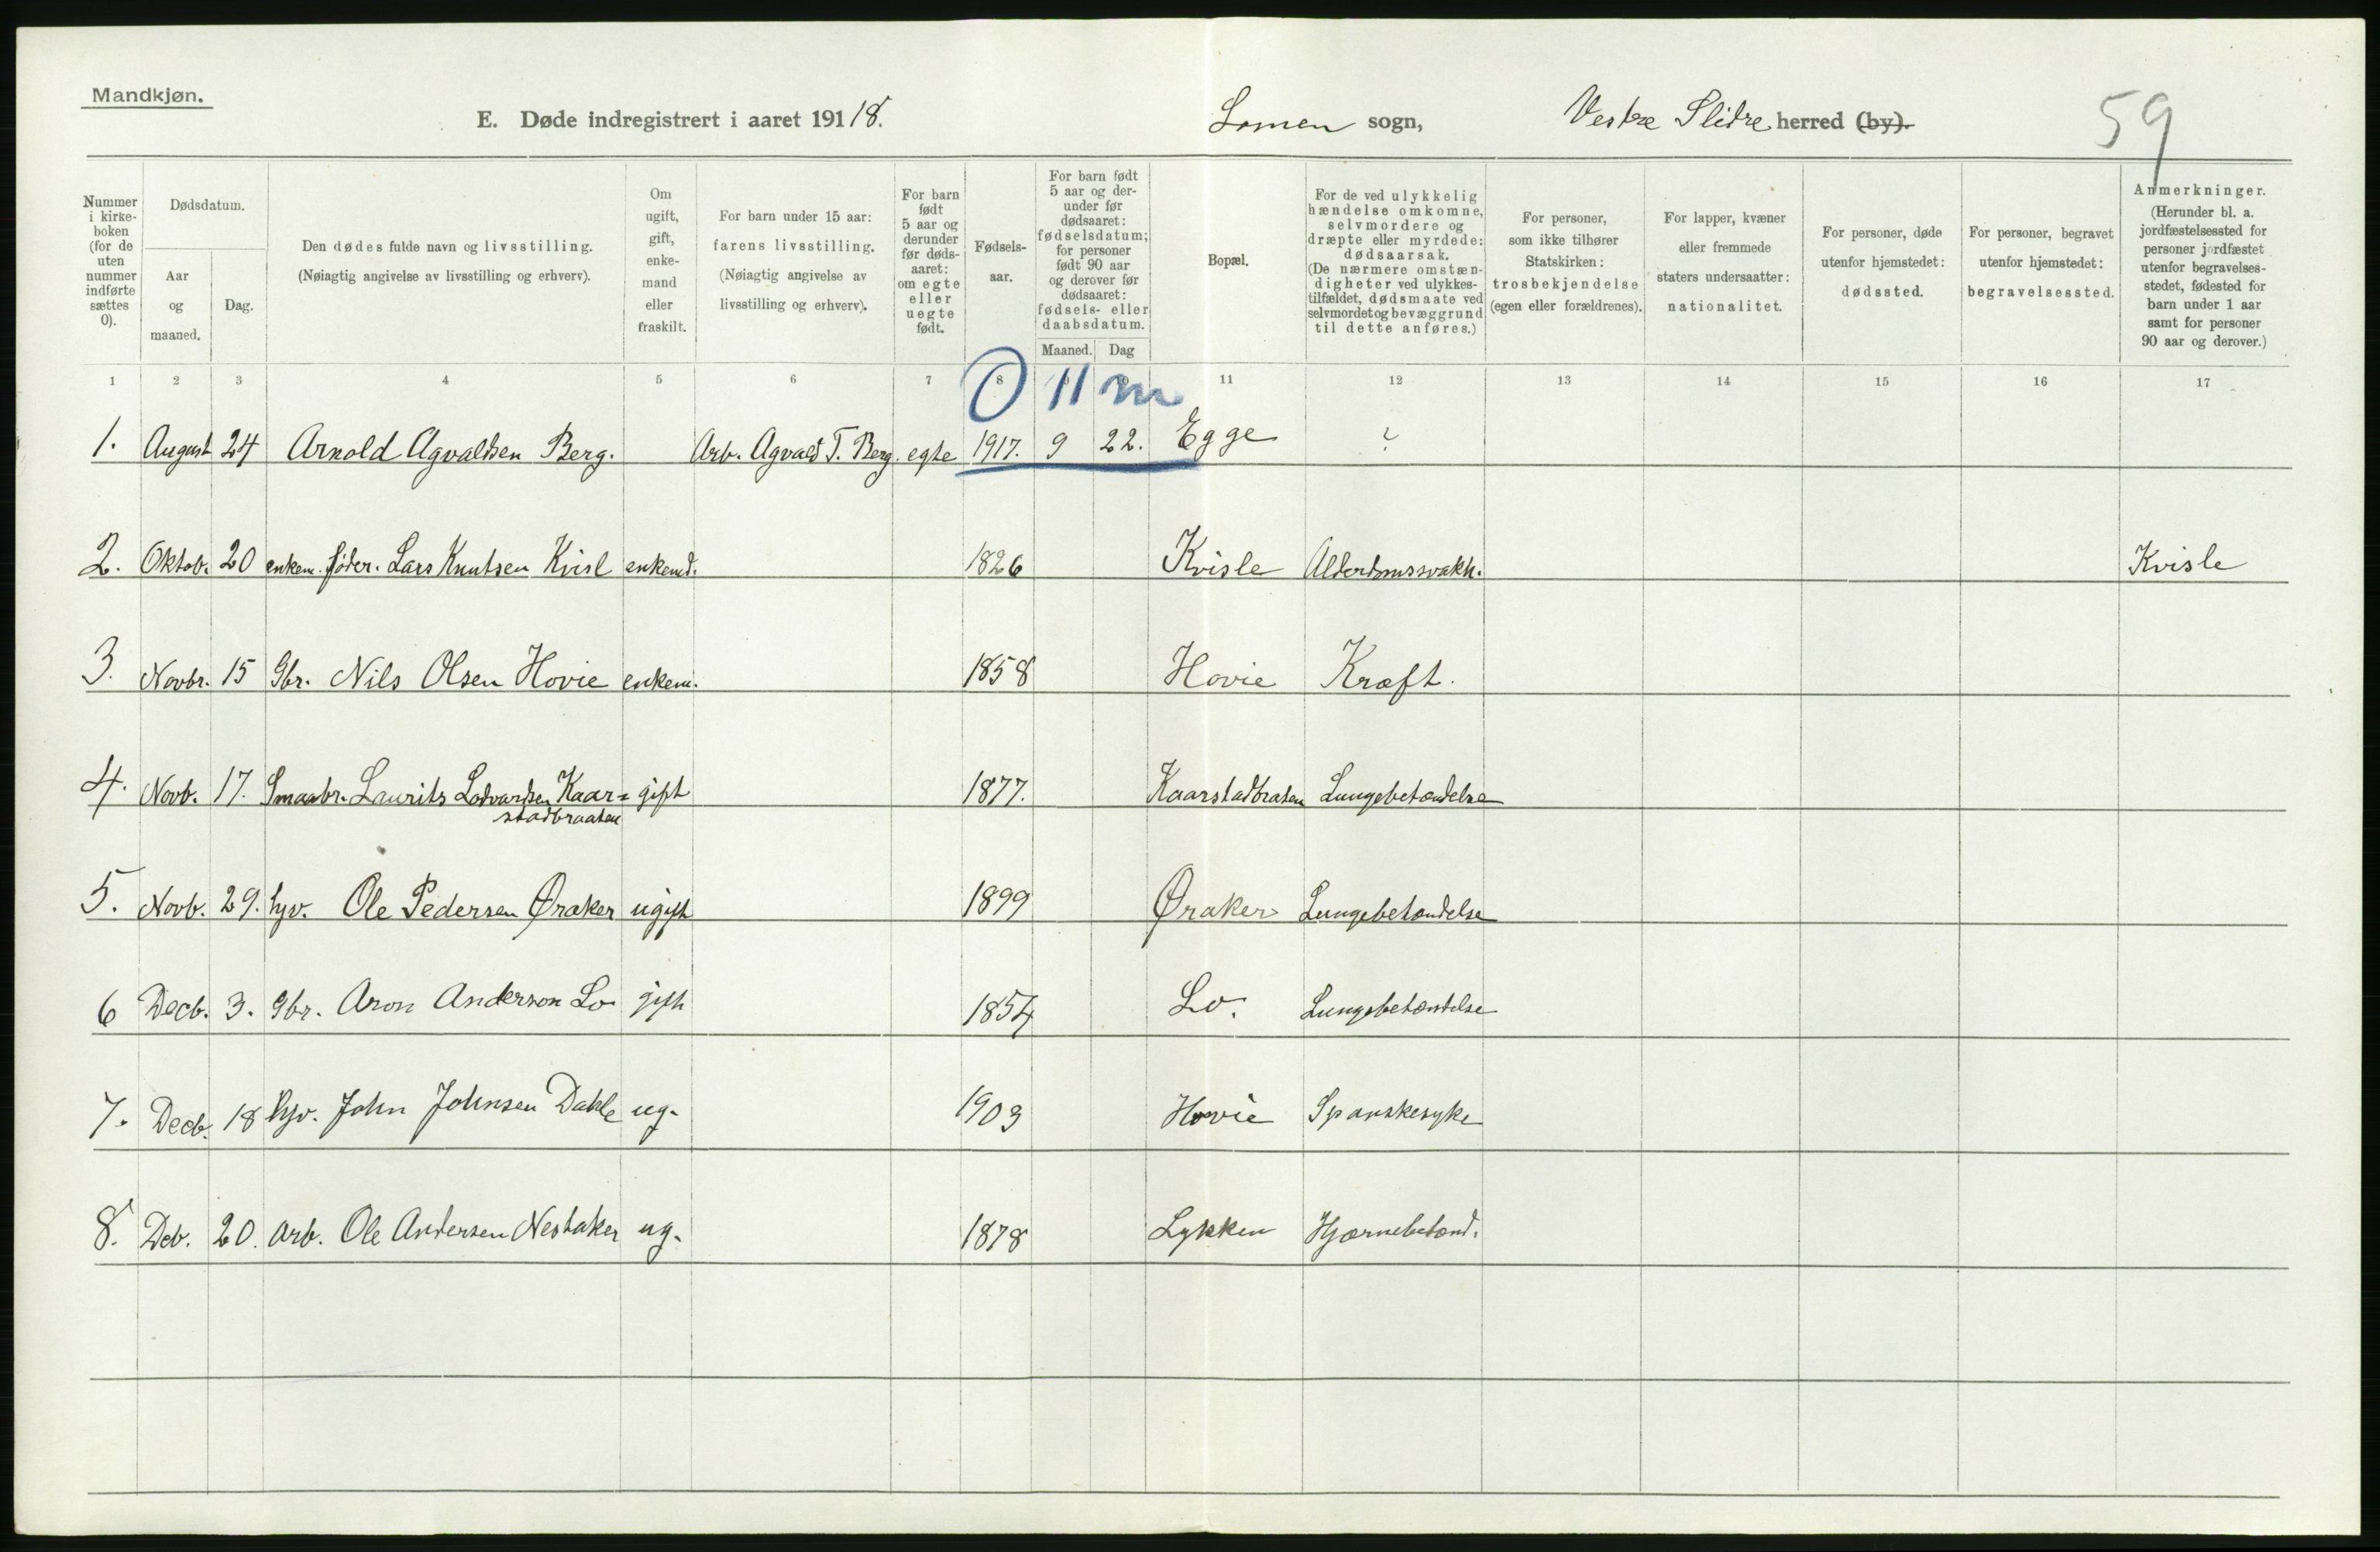 Mandkjøn.
E. Døde indregistrert i aaret 1918. Lomen sogn, Vestre Slidre herred (by).
59
Nummer i kirke-boken (for de uten nummer indførte sættes 0).
Dødsdatum.
Aar og maaned.
Dag.
Den dødes fulde navn og livsstilling.
(Nøiagtig angivelse av livsstilling og erhverv).
Om ugift, gift, enke-mand eller fraskilt.
For barn under 15 aar: farens livsstilling. (Nøiagtig angivelse av livsstilling og erhverv).
For barn født 5 aar og derunder før døds-aaret: om egte eller uegte født.
Fødsels-aar.
For barn født 5 aar og der-under før dødsaaret: fødselsdatum; for personer født 90 aar og derover før dødsaaret: fødsels- eller daabsdatum.
Maaned. Dag
Bopæl.
For de ved ulykkelig hændelse omkomne, selvmordere og dræpte eller myrdede: dødsaarsak. (De nærmere omstæn-digheter ved ulykkes-tilfældet, dødsmaate ved selvmordet og bevæggrund til dette anføres.)
For personer, som ikke tilhører Statskirken: trosbekjendelse (egen eller forældrenes).
For lapper, kvæner eller fremmede staters undersaatter: nationalitet.
For personer, døde utenfor hjemstedet: dødssted.
For personer, begravet utenfor hjemstedet: begravelsessted.
Anmerkninger. (Herunder bl. a. jordfæstelsessted for personer jordfæstet utenfor begravelses-stedet, fødested for barn under 1 aar samt for personer 90 aar og derover.)
1 2 3 4 5 6 7 8 11 12 13 14 15 16 17
0 11 m
1. August 24 Arnold Agvaldsen Berg. Arb. Agvald T. Berg. egte 1917. 9 22. Egge ?
2. Oktob. 20 enkem. föder. Lars Knutsen Kvisl enkemd. 1826 Kvisle Alderdomssvakh. Kvisle
3. Novbr. 15 Gbr. Nils Olsen Hovie enkem. 1858 Hovie Kræft.
4. Novb. 17. Smaabr. Laurits Lodvardsen Kaar= gift 1877. Kaarstadbraaten Lungebetændelse
stadbraaten
5. Novb. 29. hjv. Ole Pedersen Øraker ugift 1899 Øraker Lungebetændelse
6 Decb. 3. Gbr. Aron Anderson Lo gift 1854 Lo. Lungebetændelse
7. Decb. 18 hjv. John Johnsen Dahle ug. 1903 Hovie Spanskesyke
8. Deb. 20. Arb. Ole Andersen Nestaker ug. 1878 Lykken Hjærnebetænd.